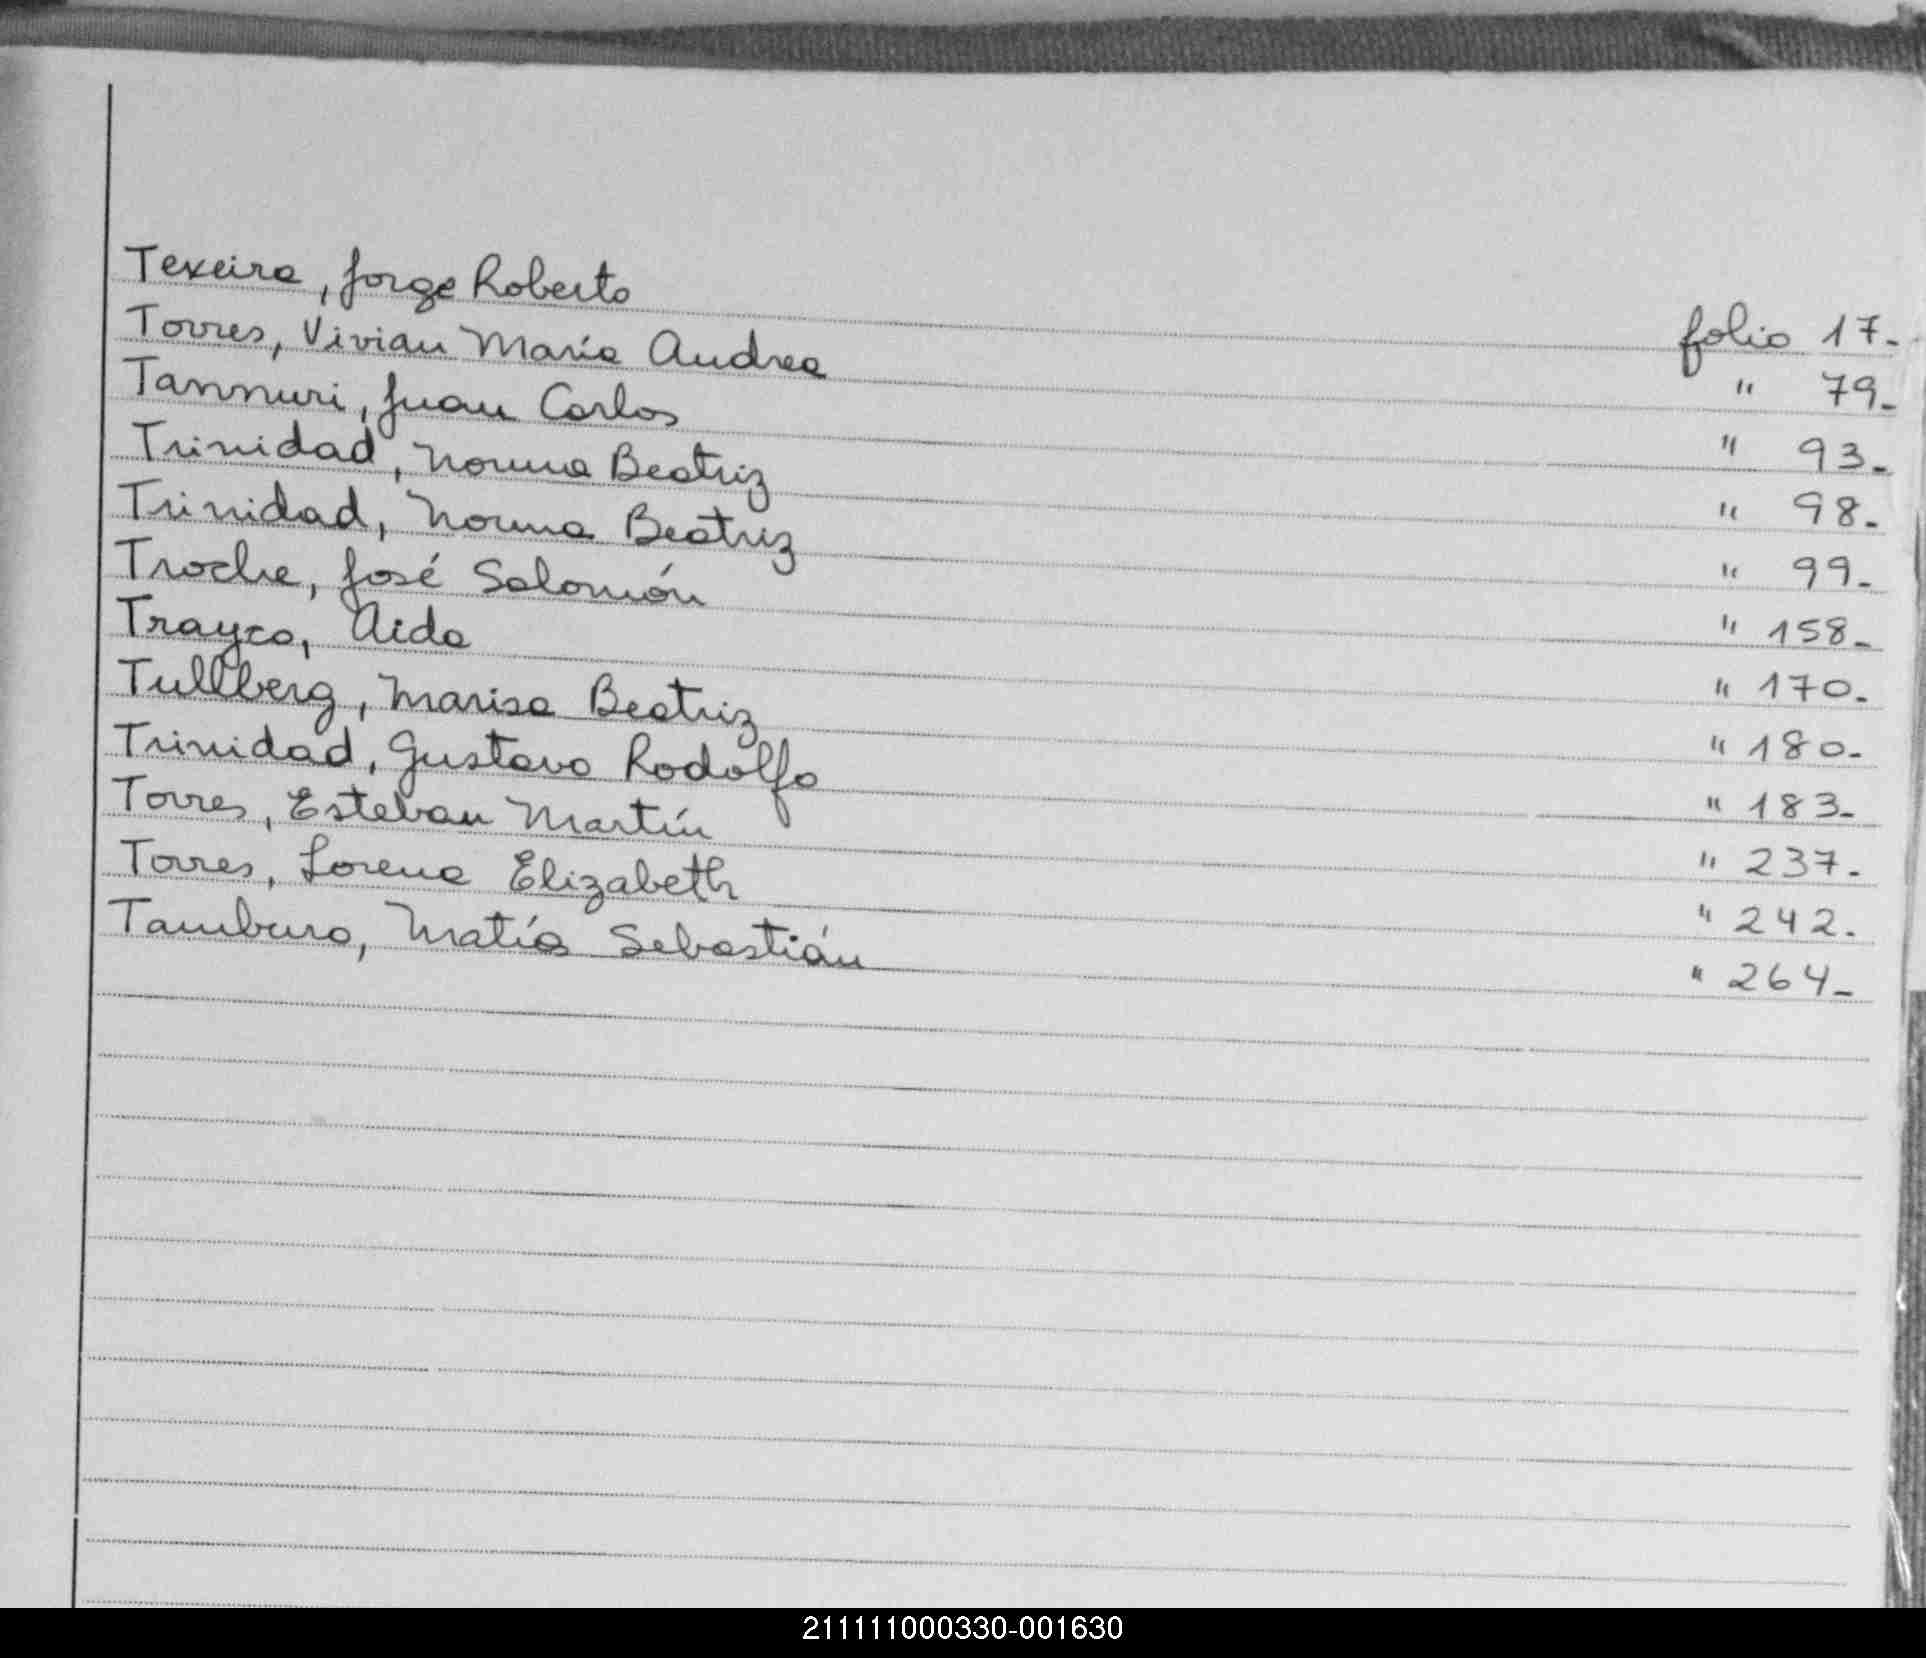 Texeira, Jorge Roberto folio 17-
Torres, Vivian María Andrea " 79-
Tannuri, Juan Carlos " 93-
Trinidad, Norma Beatriz " 98-
Trinidad, Norma Beatriz " 99-
Troche, José Salomón " 158-
Trayco, Aida " 170-
Tullberg, Marisa Beatriz " 180-
Trinidad, Gustavo Rodolfo " 183-
Torres, Esteban Martín " 237-
Torres, Lorena Elizabeth " 242-
Tamburo, Matías Sebastián " 264-
211111000330-001630